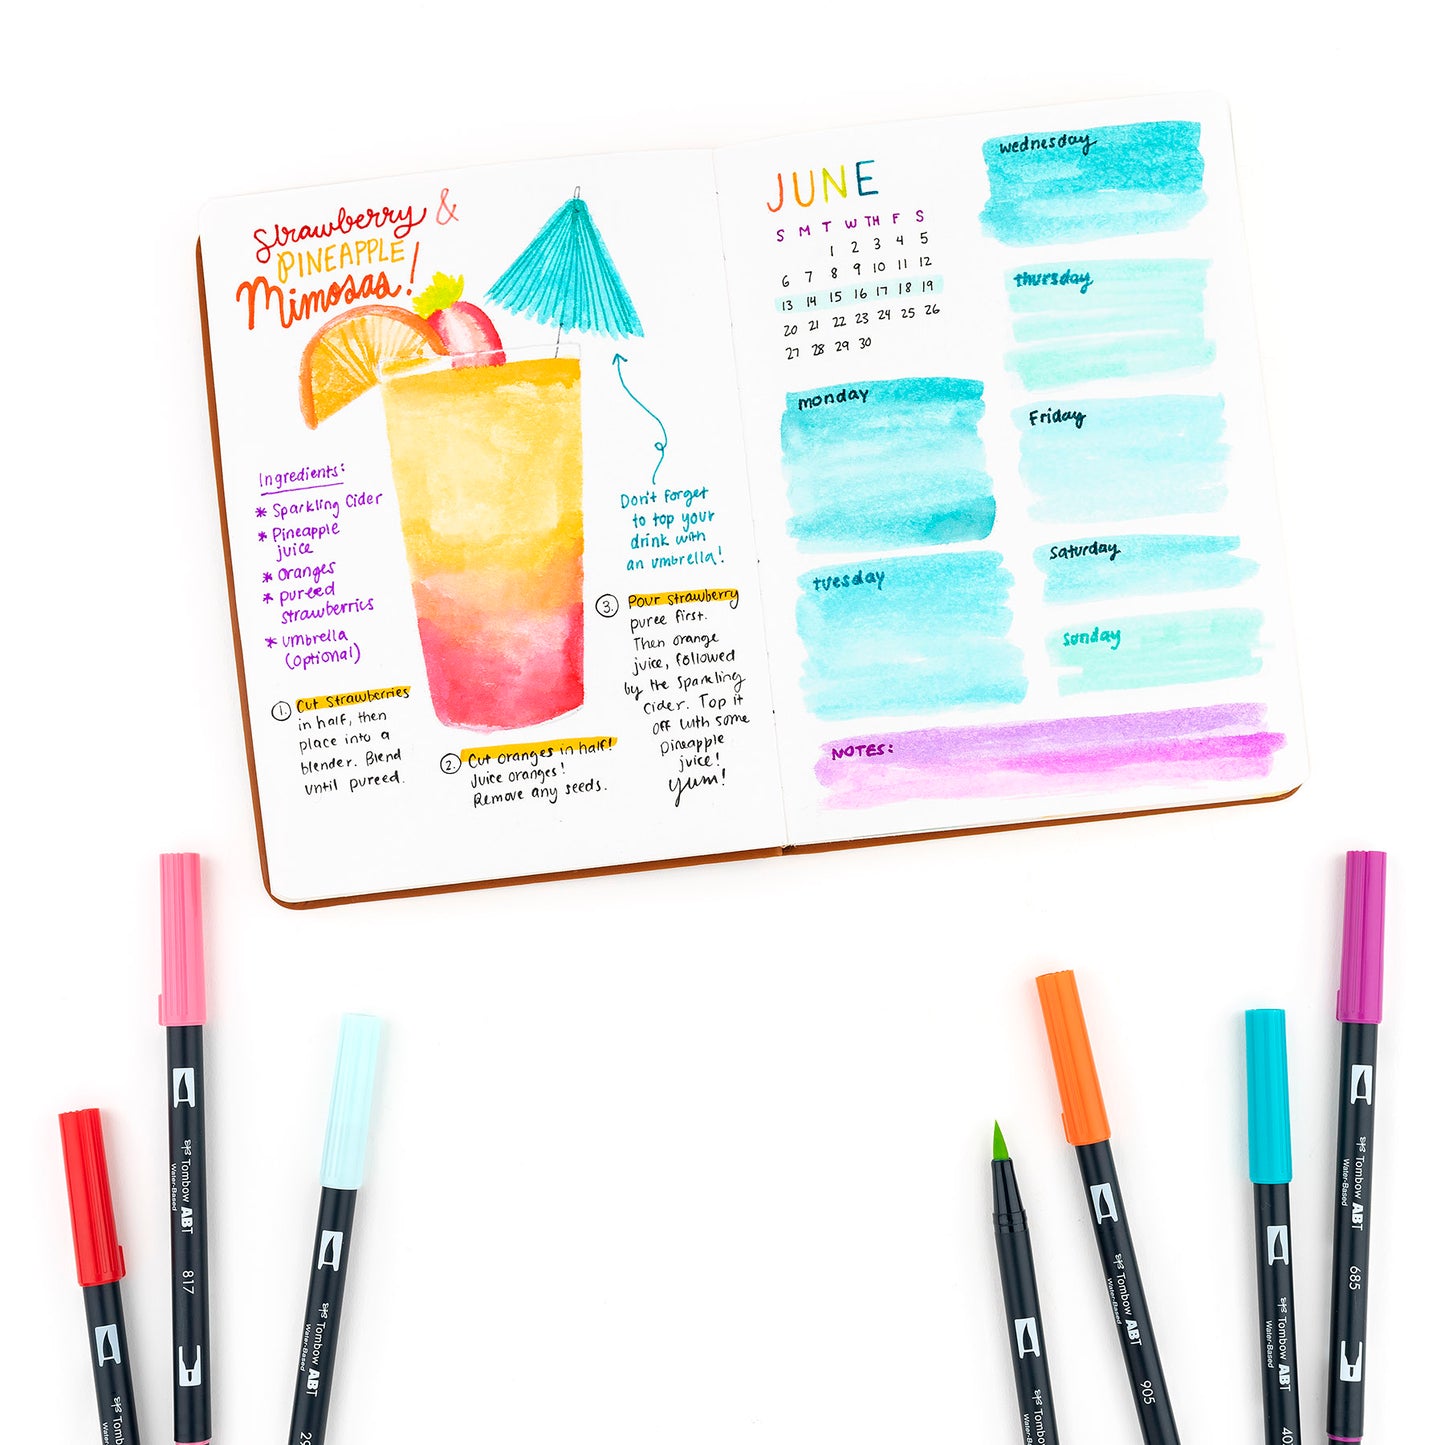 Strawberry &
PINEAPPLE
Mimosas!
Ingredients:
* Sparkling Cider
* Pineapple
juice
* Oranges
* pureed
strawberries
* umbrella
(optional)
Don't forget
to top your
drink with
an umbrella!
1. Cut Strawberries
in half, then
place into a
blender. Blend
until pureed.
2. Cut oranges in half!
Juice oranges!
Remove any seeds.
3. Pour strawberry
puree first.
Then orange
juice, followed
by the sparkling
cider. Top it
off with some
pineapple
juice!
yum!
JUNE
S M T W TH F S
1 2 3 4 5
6 7 8 9 10 11 12
13 14 15 16 17 18 19
20 21 22 23 24 25 26
27 28 29 30
monday
tuesday
wednesday
thursday
Friday
Saturday
sunday
NOTES:
Tombow
Water-Based
Tombow ABT
Water-Based
817
Tombow ABT
Water-Based
29
Tombow ABT
Water-Based
905
Tombow ABT
Water-Based
40
Tombow ABT
Water-Based
685